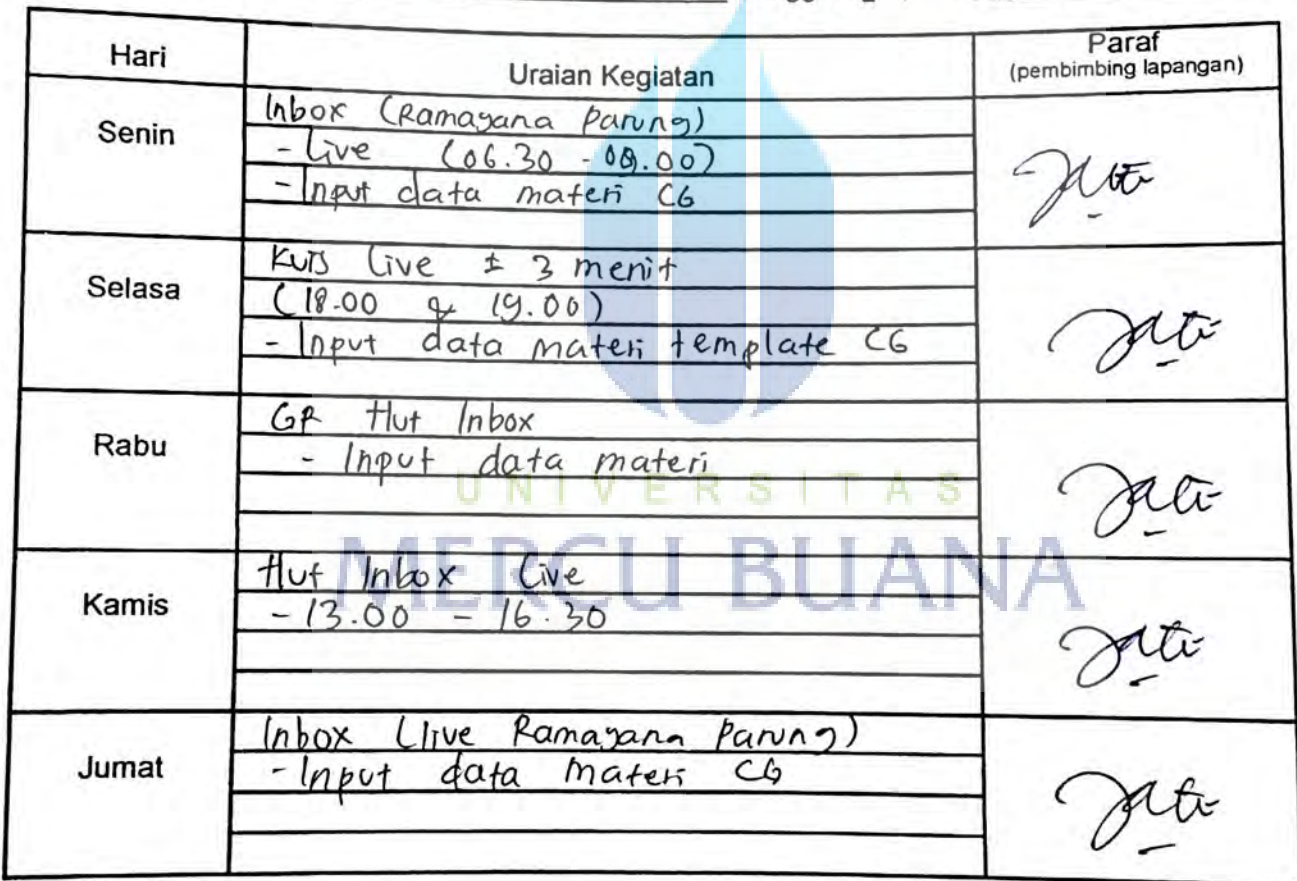 Hari
Uraian Kegiatan
Paraf
(pembimbing lapangan)
Senin
Inbox (Ramayana Parung)
- Live (06.30 - 09.00)
- Input data materi CG
Selasa
Kuis Live ± 3 menit
(18.00 & 19.00)
- Input data materi template CG
Rabu
GR Hut Inbox
- Input data materi
Kamis
Hut Inbox Live
- 13.00 - 16.30
Jumat
Inbox (live Ramayana Parung)
- Input data materi CG
UNIVERSITAS
MERCU BUANA